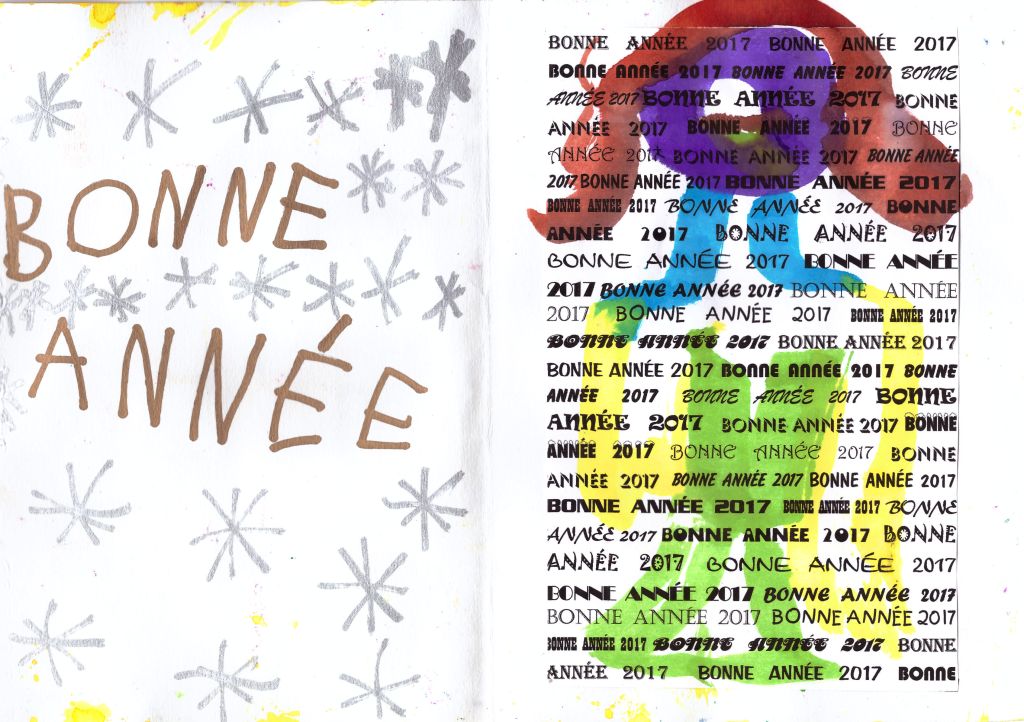 BONNE
ANNÉE
BONNE ANNÉE 2017 BONNE ANNÉE 2017
BONNE ANNÉE 2017 BONNE ANNÉE 2017 BONNE
ANNÉE 2017 BONNE ANNÉE 2017 BONNE
ANNÉE 2017 BONNE ANNÉE 2017 BONNE
ANNÉE 2017 BONNE ANNÉE 2017 BONNE ANNÉE
2017 BONNE ANNÉE 2017 BONNE ANNÉE 2017
BONNE ANNÉE 2017 BONNE ANNÉE 2017 BONNE
ANNÉE 2017 BONNE ANNÉE 2017
BONNE ANNÉE 2017 BONNE ANNÉE
2017 BONNE ANNÉE 2017 BONNE ANNÉE
2017 BONNE ANNÉE 2017 BONNE ANNÉE 2017
BONNE ANNÉE 2017 BONNE ANNÉE 2017
BONNE ANNÉE 2017 BONNE ANNÉE 2017 BONNE
ANNÉE 2017 BONNE ANNÉE 2017 BONNE
ANNÉE 2017 BONNE ANNÉE 2017 BONNE
ANNÉE 2017 BONNE ANNÉE 2017 BONNE
ANNÉE 2017 BONNE ANNÉE 2017 BONNE ANNÉE 2017
BONNE ANNÉE 2017 BONNE ANNÉE 2017 BONNE
ANNÉE 2017 BONNE ANNÉE 2017 BONNE
ANNÉE 2017 BONNE ANNÉE 2017
BONNE ANNÉE 2017 BONNE ANNÉE 2017
BONNE ANNÉE 2017 BONNE ANNÉE 2017
BONNE ANNÉE 2017 BONNE ANNÉE 2017 BONNE
ANNÉE 2017 BONNE ANNÉE 2017 BONNE